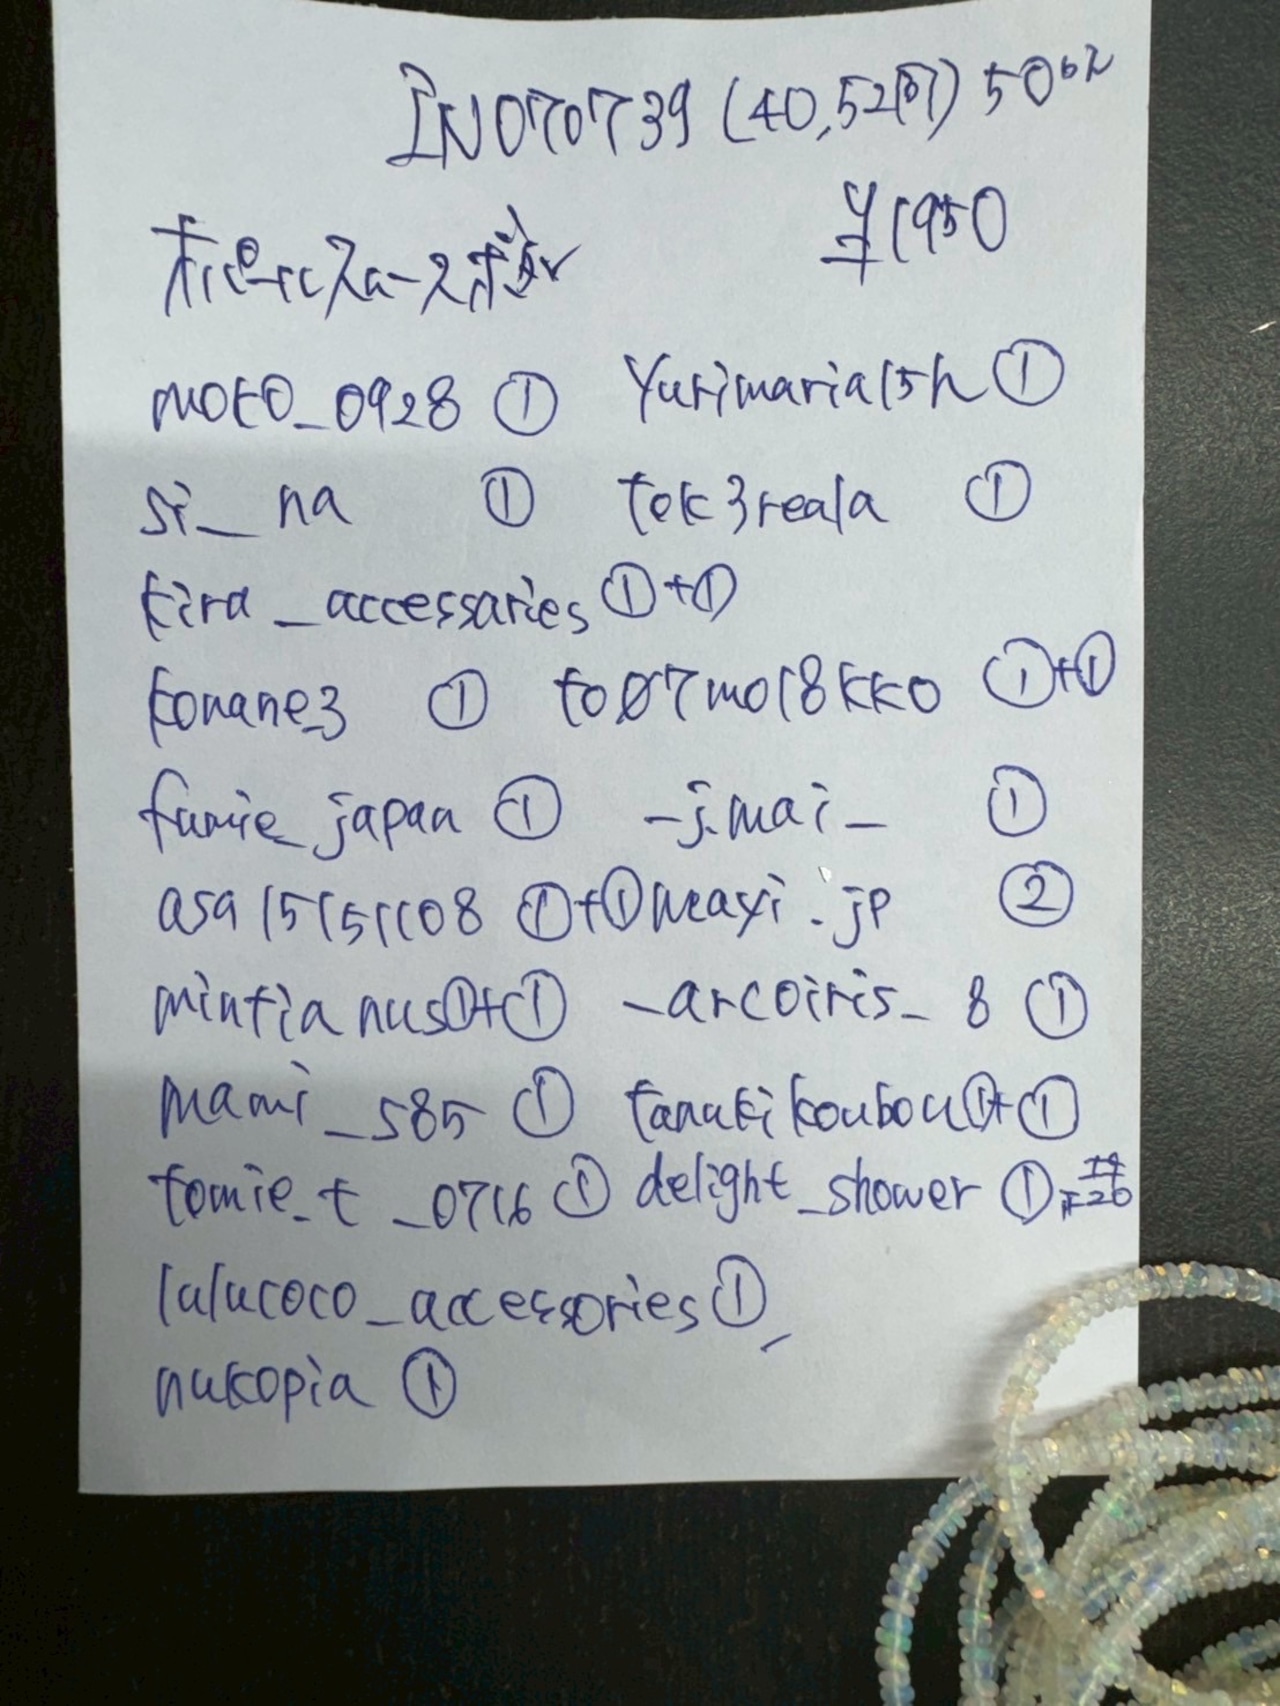 IN070739 (40,52町) 50
¥1950
moto_0928 ① Yurimaria15h ①
si__na ① tok3reala ①
kira_accessaries ①+①
konane3 ① to07mo18kko ①+①
fumie_japan ① _j.mai_ ①
asa15151108 ①+① meayi.jp ②
mintianus①+① _arcoiris_8 ①
mami_s85 ① tanukikoubou①+①
tomie_t_0716 ① delight_shower ①
lulucoco_accessories①
nukopia ①